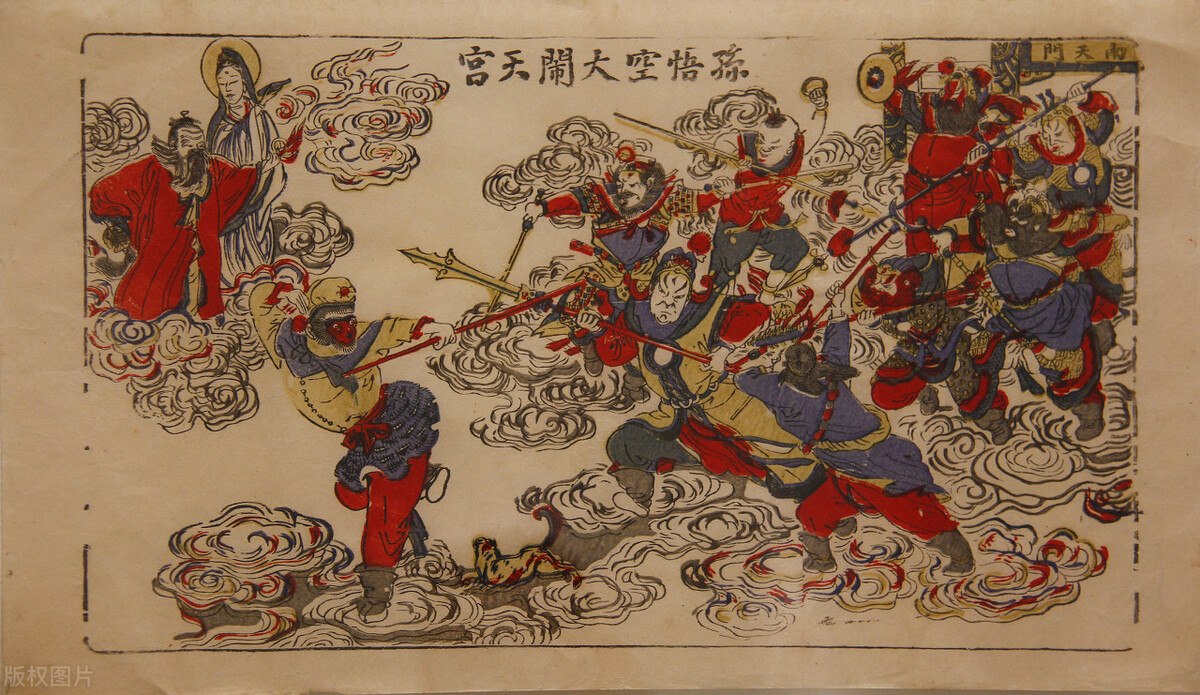 孫悟空大鬧天宮
南天門
版权图片